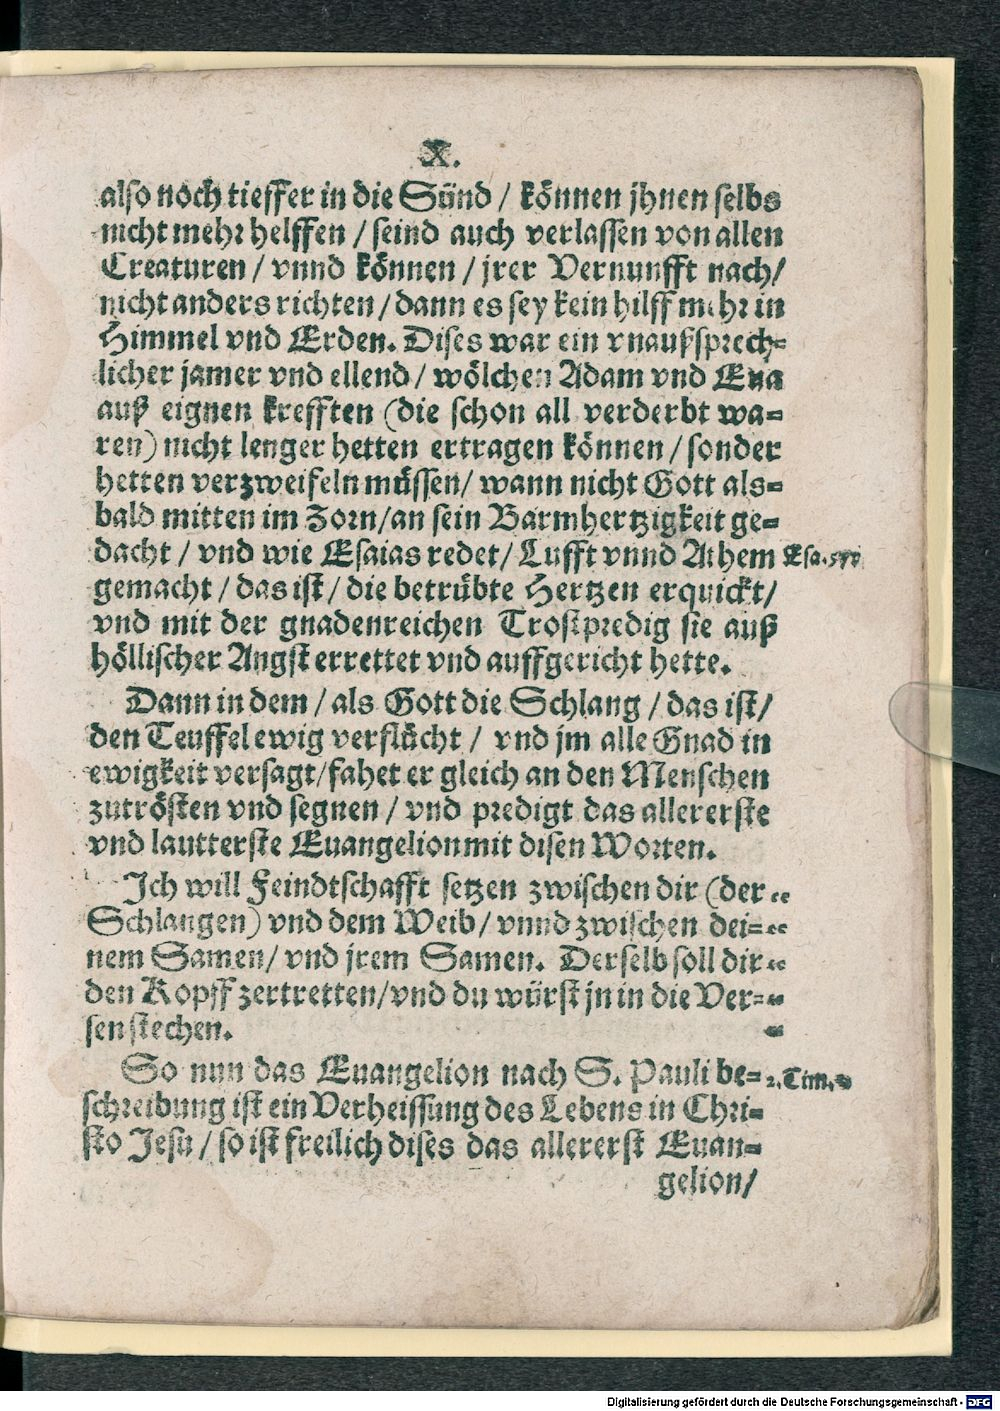 X.
also noch tieffer in die Sünd / können jhnen selbs
nicht mehr helffen / seind auch verlassen von allen
Creaturen / vnnd können / jrer Vernunfft nach/
nicht anders richten / dann es sey kein hilff mehr in
Himmel vnd Erden. Dises war ein vnaußsprech-
licher jamer vnd ellend / wölchen Adam vnd Eua
auß eignen krefften (die schon all verderbt wa-
ren) nicht lenger hetten ertragen können / sonder
hetten verzweifeln müssen/ wann nicht Gott als-
bald mitten im Zorn/an sein Barmhertzigkeit ge-
dacht / vnd wie Esaias redet/ Lufft vnnd Athem Esa.
gemacht / das ist / die betrübte Hertzen erquickt/
vnd mit der gnadenreichen Trostpredig sie auß
höllischer Angst errettet vnd auffgericht hette.
Dann in dem / als Gott die Schlang / das ist/
den Teuffel ewig verflücht / vnd jm alle Gnad in
ewigkeit versagt/fahet er gleich an den Menschen
zutrösten vnd segnen / vnd predigt das allererste
vnd lautterste Euangelion mit disen Worten.
Ich will Feindtschafft setzen zwischen dir (der
Schlangen) vnd dem Weib/ vnnd zwischen dei-
nem Samen/ vnd jrem Samen. Derselb soll dir
den Kopff zertretten/vnd du würst jn in die Ver-
sen stechen.
So nun das Euangelion nach S. Pauli be- 2. Tim.
schreibung ist ein Verheissung des Lebens in Chri-
sto Jesu / so ist freilich dises das allererst Euan-
gelion/
Digitalisierung gefördert durch die Deutsche Forschungsgemeinschaft - DFG